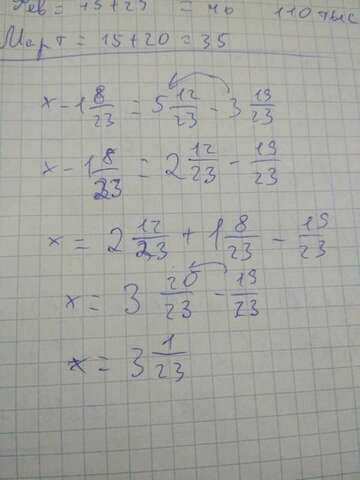 Фев = 15+25 = 40 110 тыс
Март = 15+20 = 35
x - 1 8/23 = 5 12/23 - 3 19/23
x - 1 8/23 = 2 12/23 - 19/23
x = 2 12/23 + 1 8/23 - 19/23
x = 3 20/23 - 19/23
x = 3 1/23